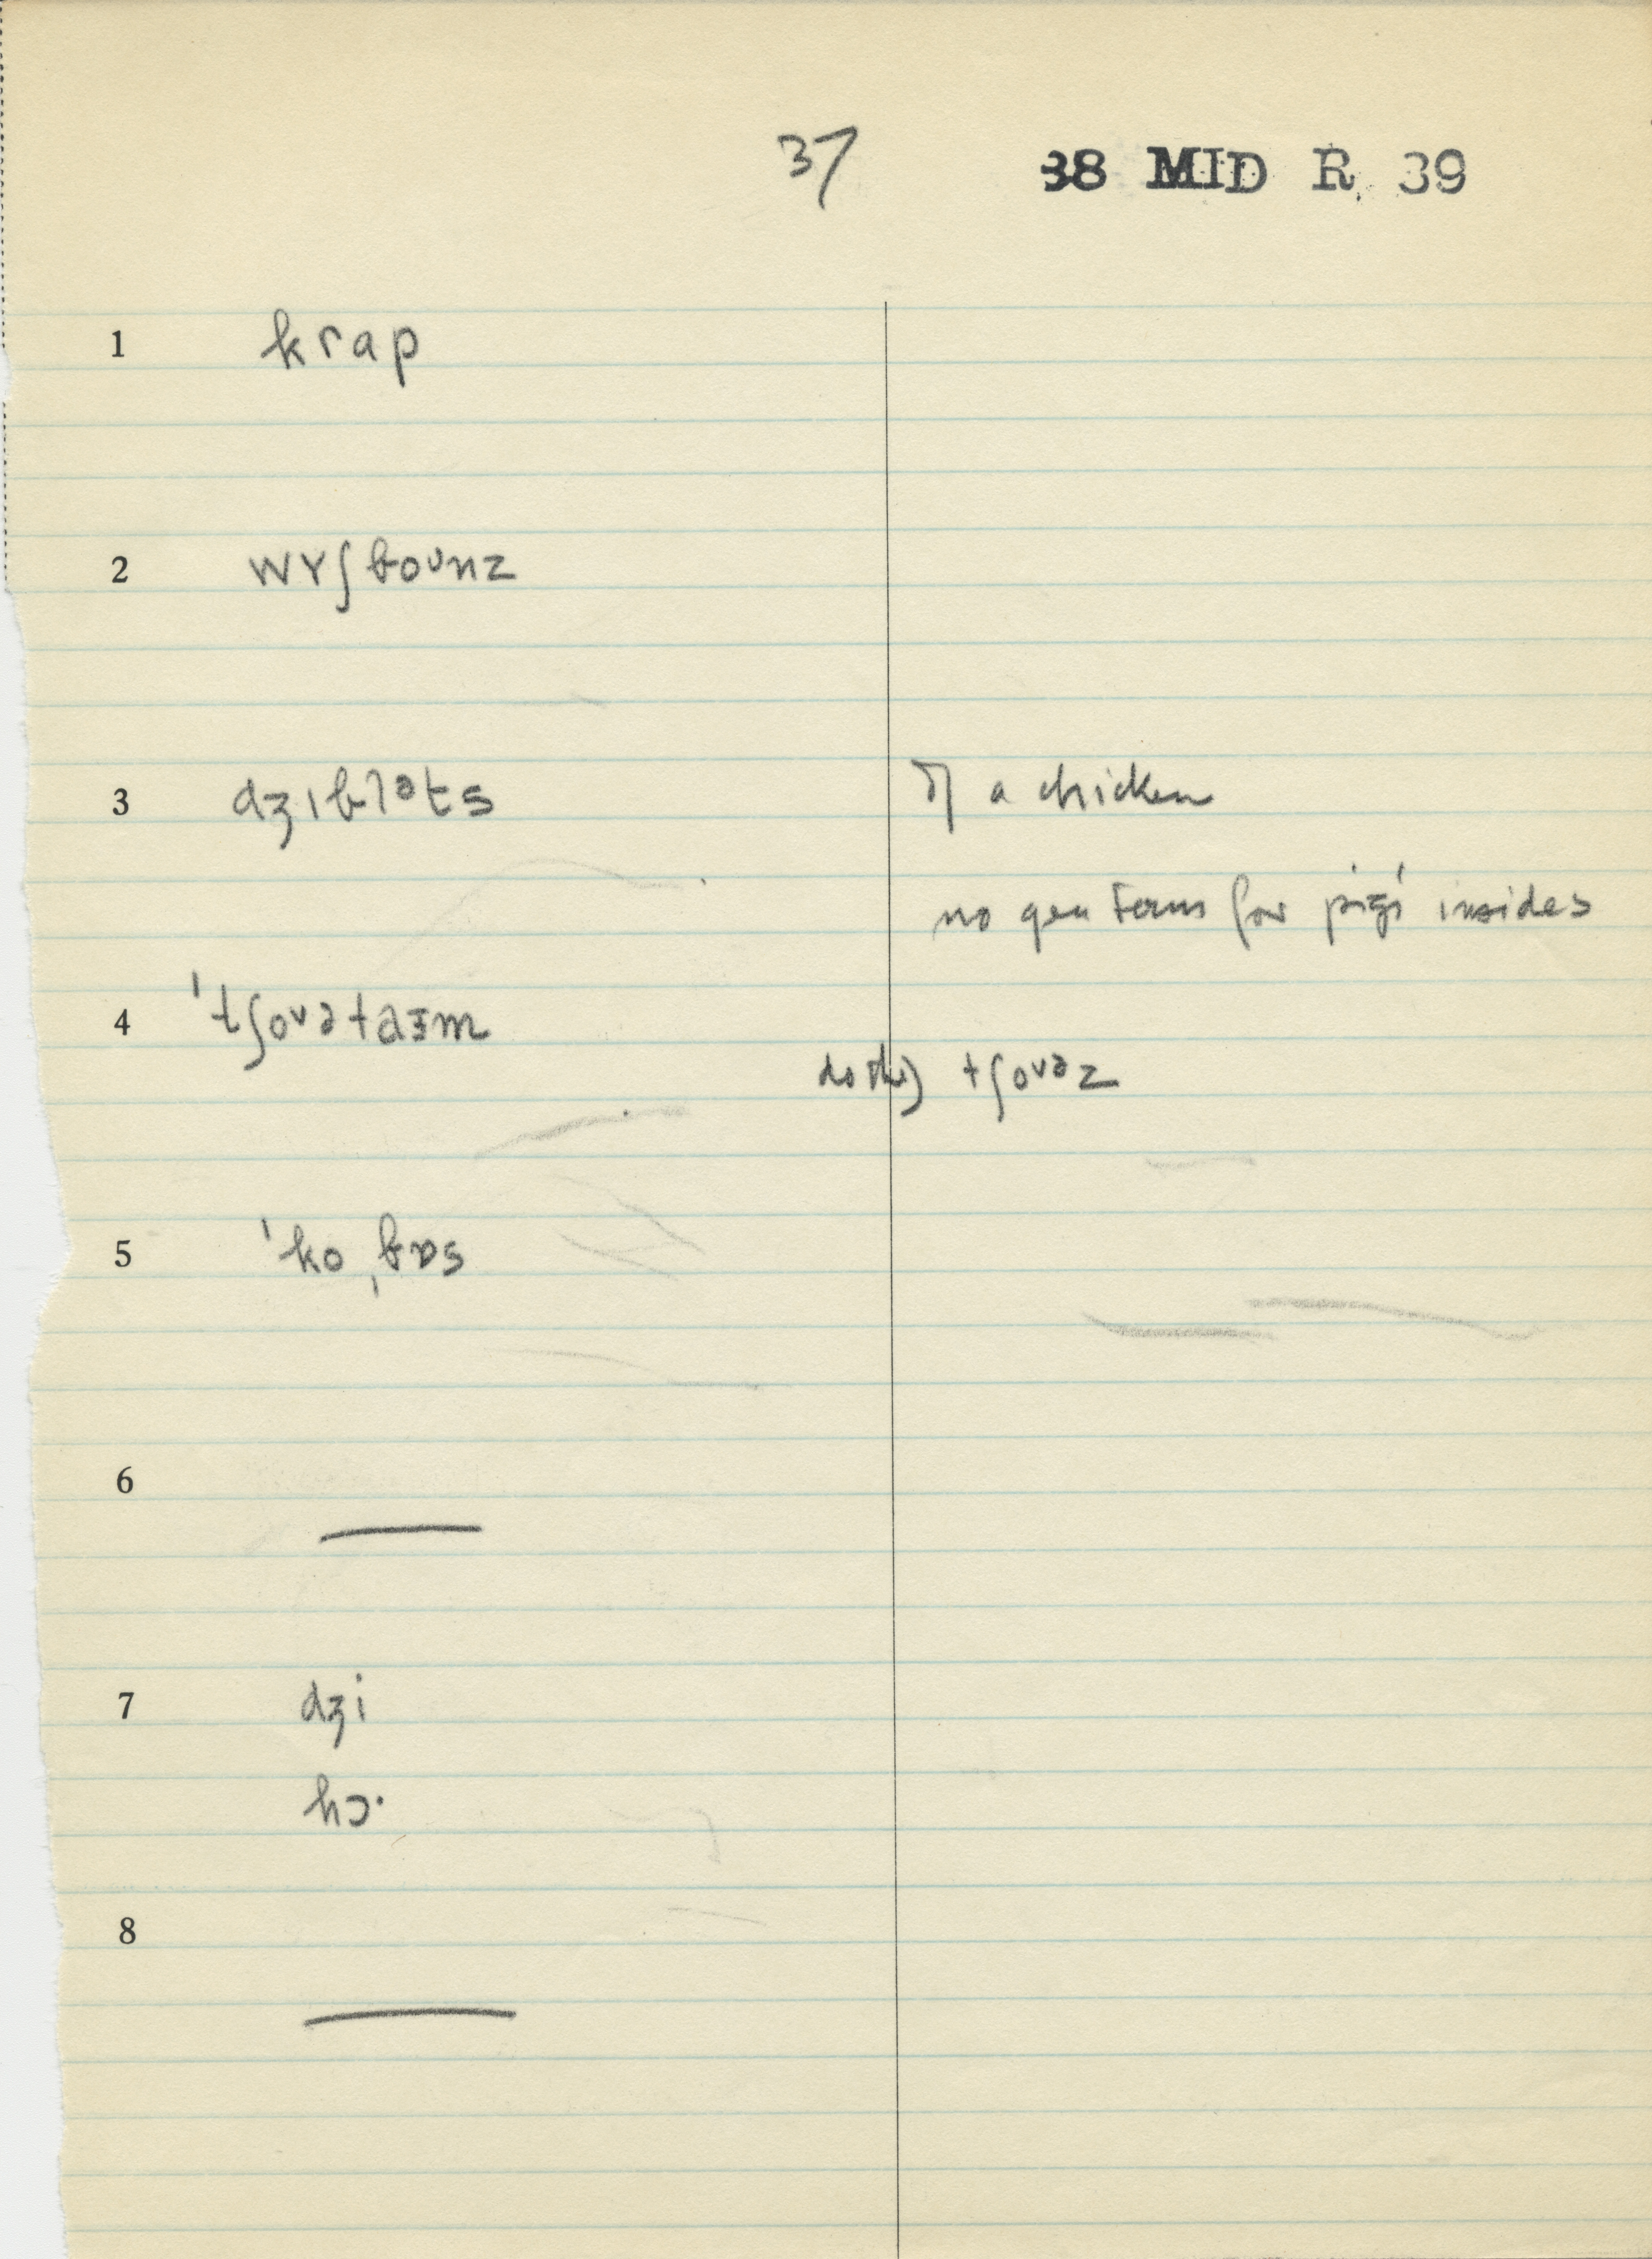 37
38 MID R. 39
1 krap
2 wʏʃbounz
3 dʒɪblᵊts of a chicken
no gen term for pigs' insides
4 'tʃoʊətaɪm
do the) tʃoʊəz
5 'ko ˌbɒs
6 —
7 dʒi
hɔ·
8 —